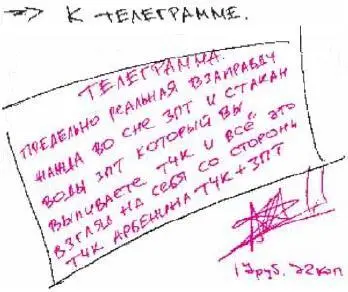 → К ТЕЛЕГРАММЕ.
ТЕЛЕГРАММА.
ПРЕДЕЛЬНО РЕАЛЬНАЯ
ЖАЖДА ВО СНЕ ЗПТ И СТАКАН
ВОДЫ ЗПТ КОТОРЫЙ ВЫ
ВЫПИВАЕТЕ ТЧК И ВСЁ ЭТО
ВЗГЛЯД НА СЕБЯ СО СТОРОНЫ
ТЧК АРБЕНИНА ТЧК + ЗПТ
17 руб. 22 коп